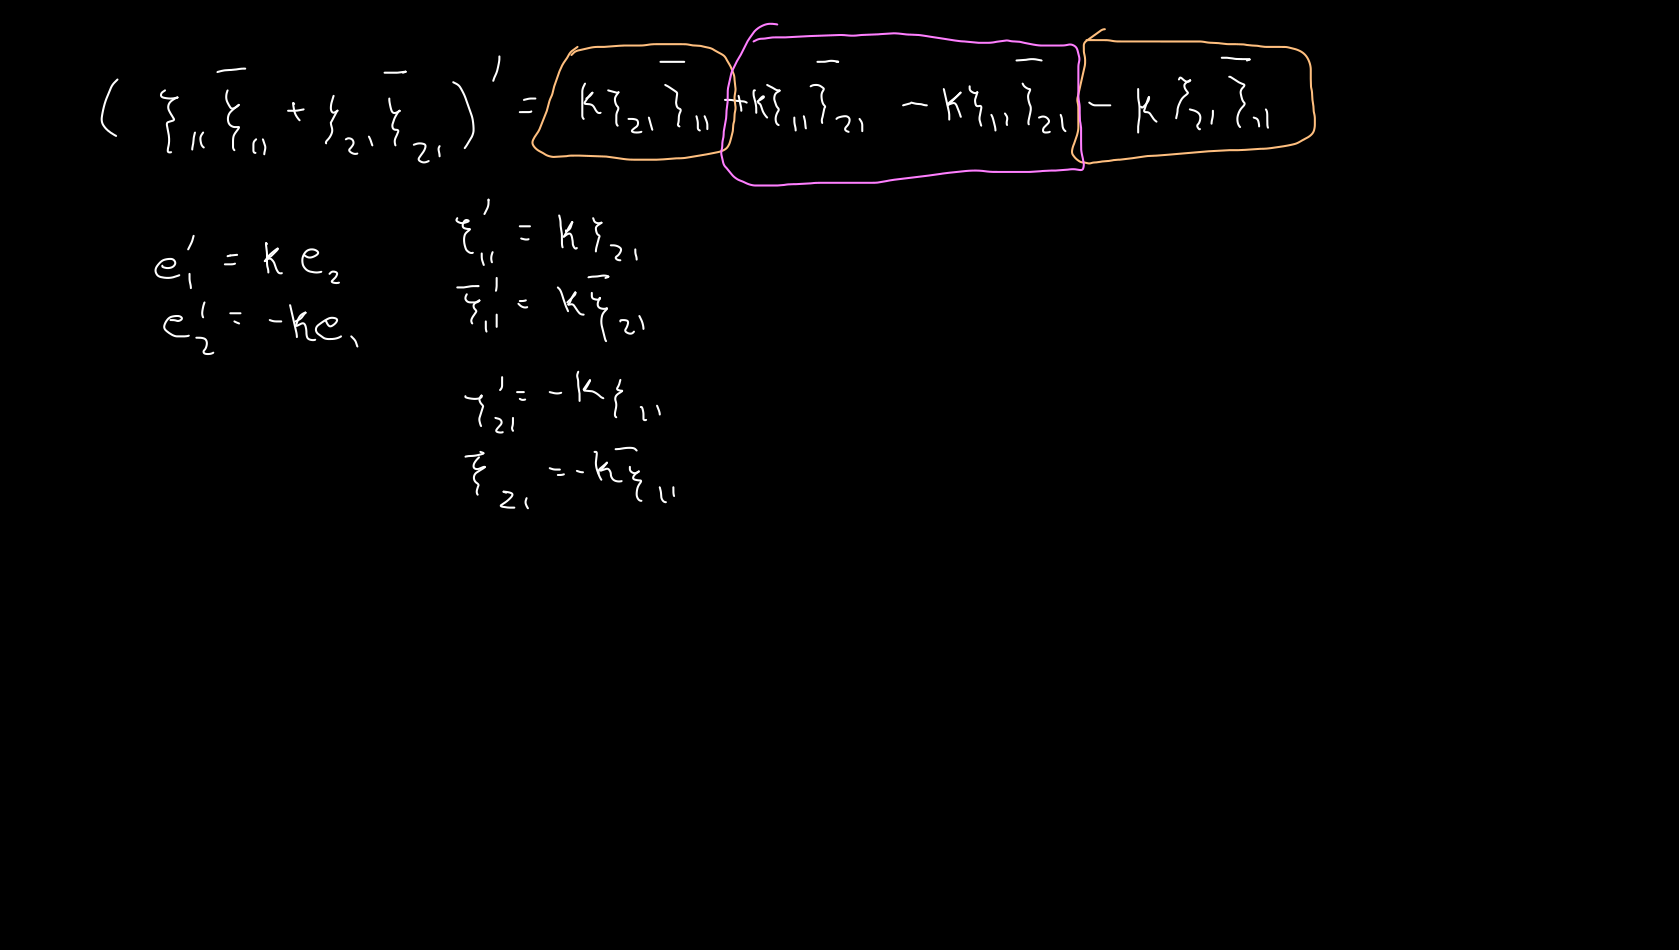 ( ξ₁₁ ξ̄₁₁ + ξ₂₁ ξ̄₂₁ )′ = k ξ₂₁ ξ̄₁₁ + k ξ₁₁ ξ̄₂₁ − k ξ₁₁ ξ̄₂₁ − k ξ₂₁ ξ̄₁₁
e₁′ = k e₂
e₂′ = −k e₁
ξ₁₁′ = k ξ₂₁
ξ̄₁₁′ = k ξ̄₂₁
ξ₂₁′ = −k ξ₁₁
ξ̄₂₁ = −k ξ̄₁₁